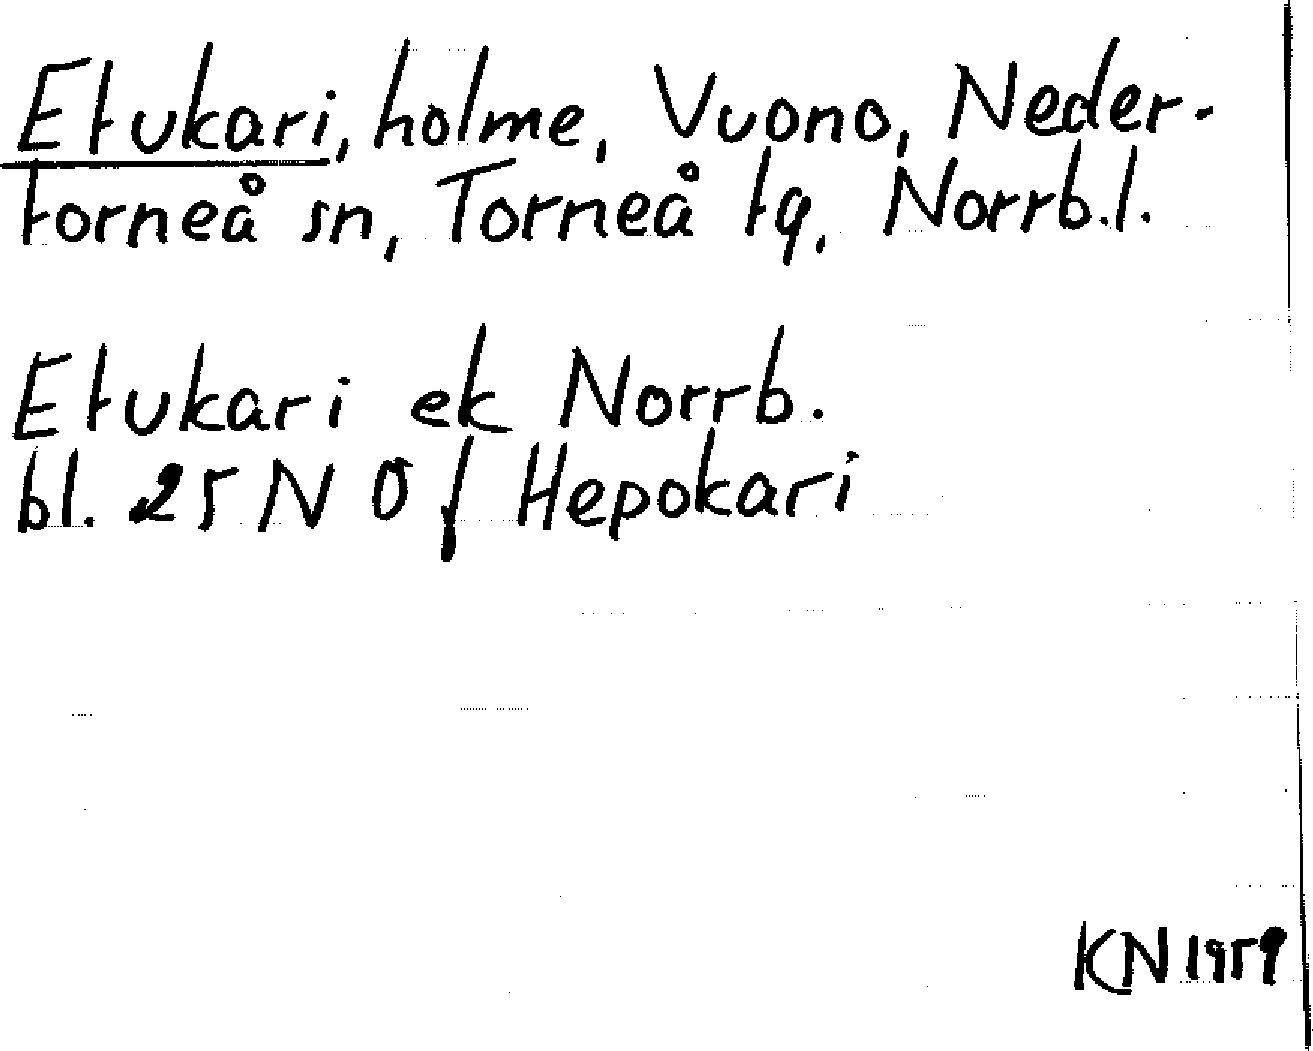 Etukari, holme, Vuono, Neder-
torneå sn, Torneå tg, Norrb.l.
Etukari ek Norrb.
bl. 25 N O f Hepokari
KN 1959